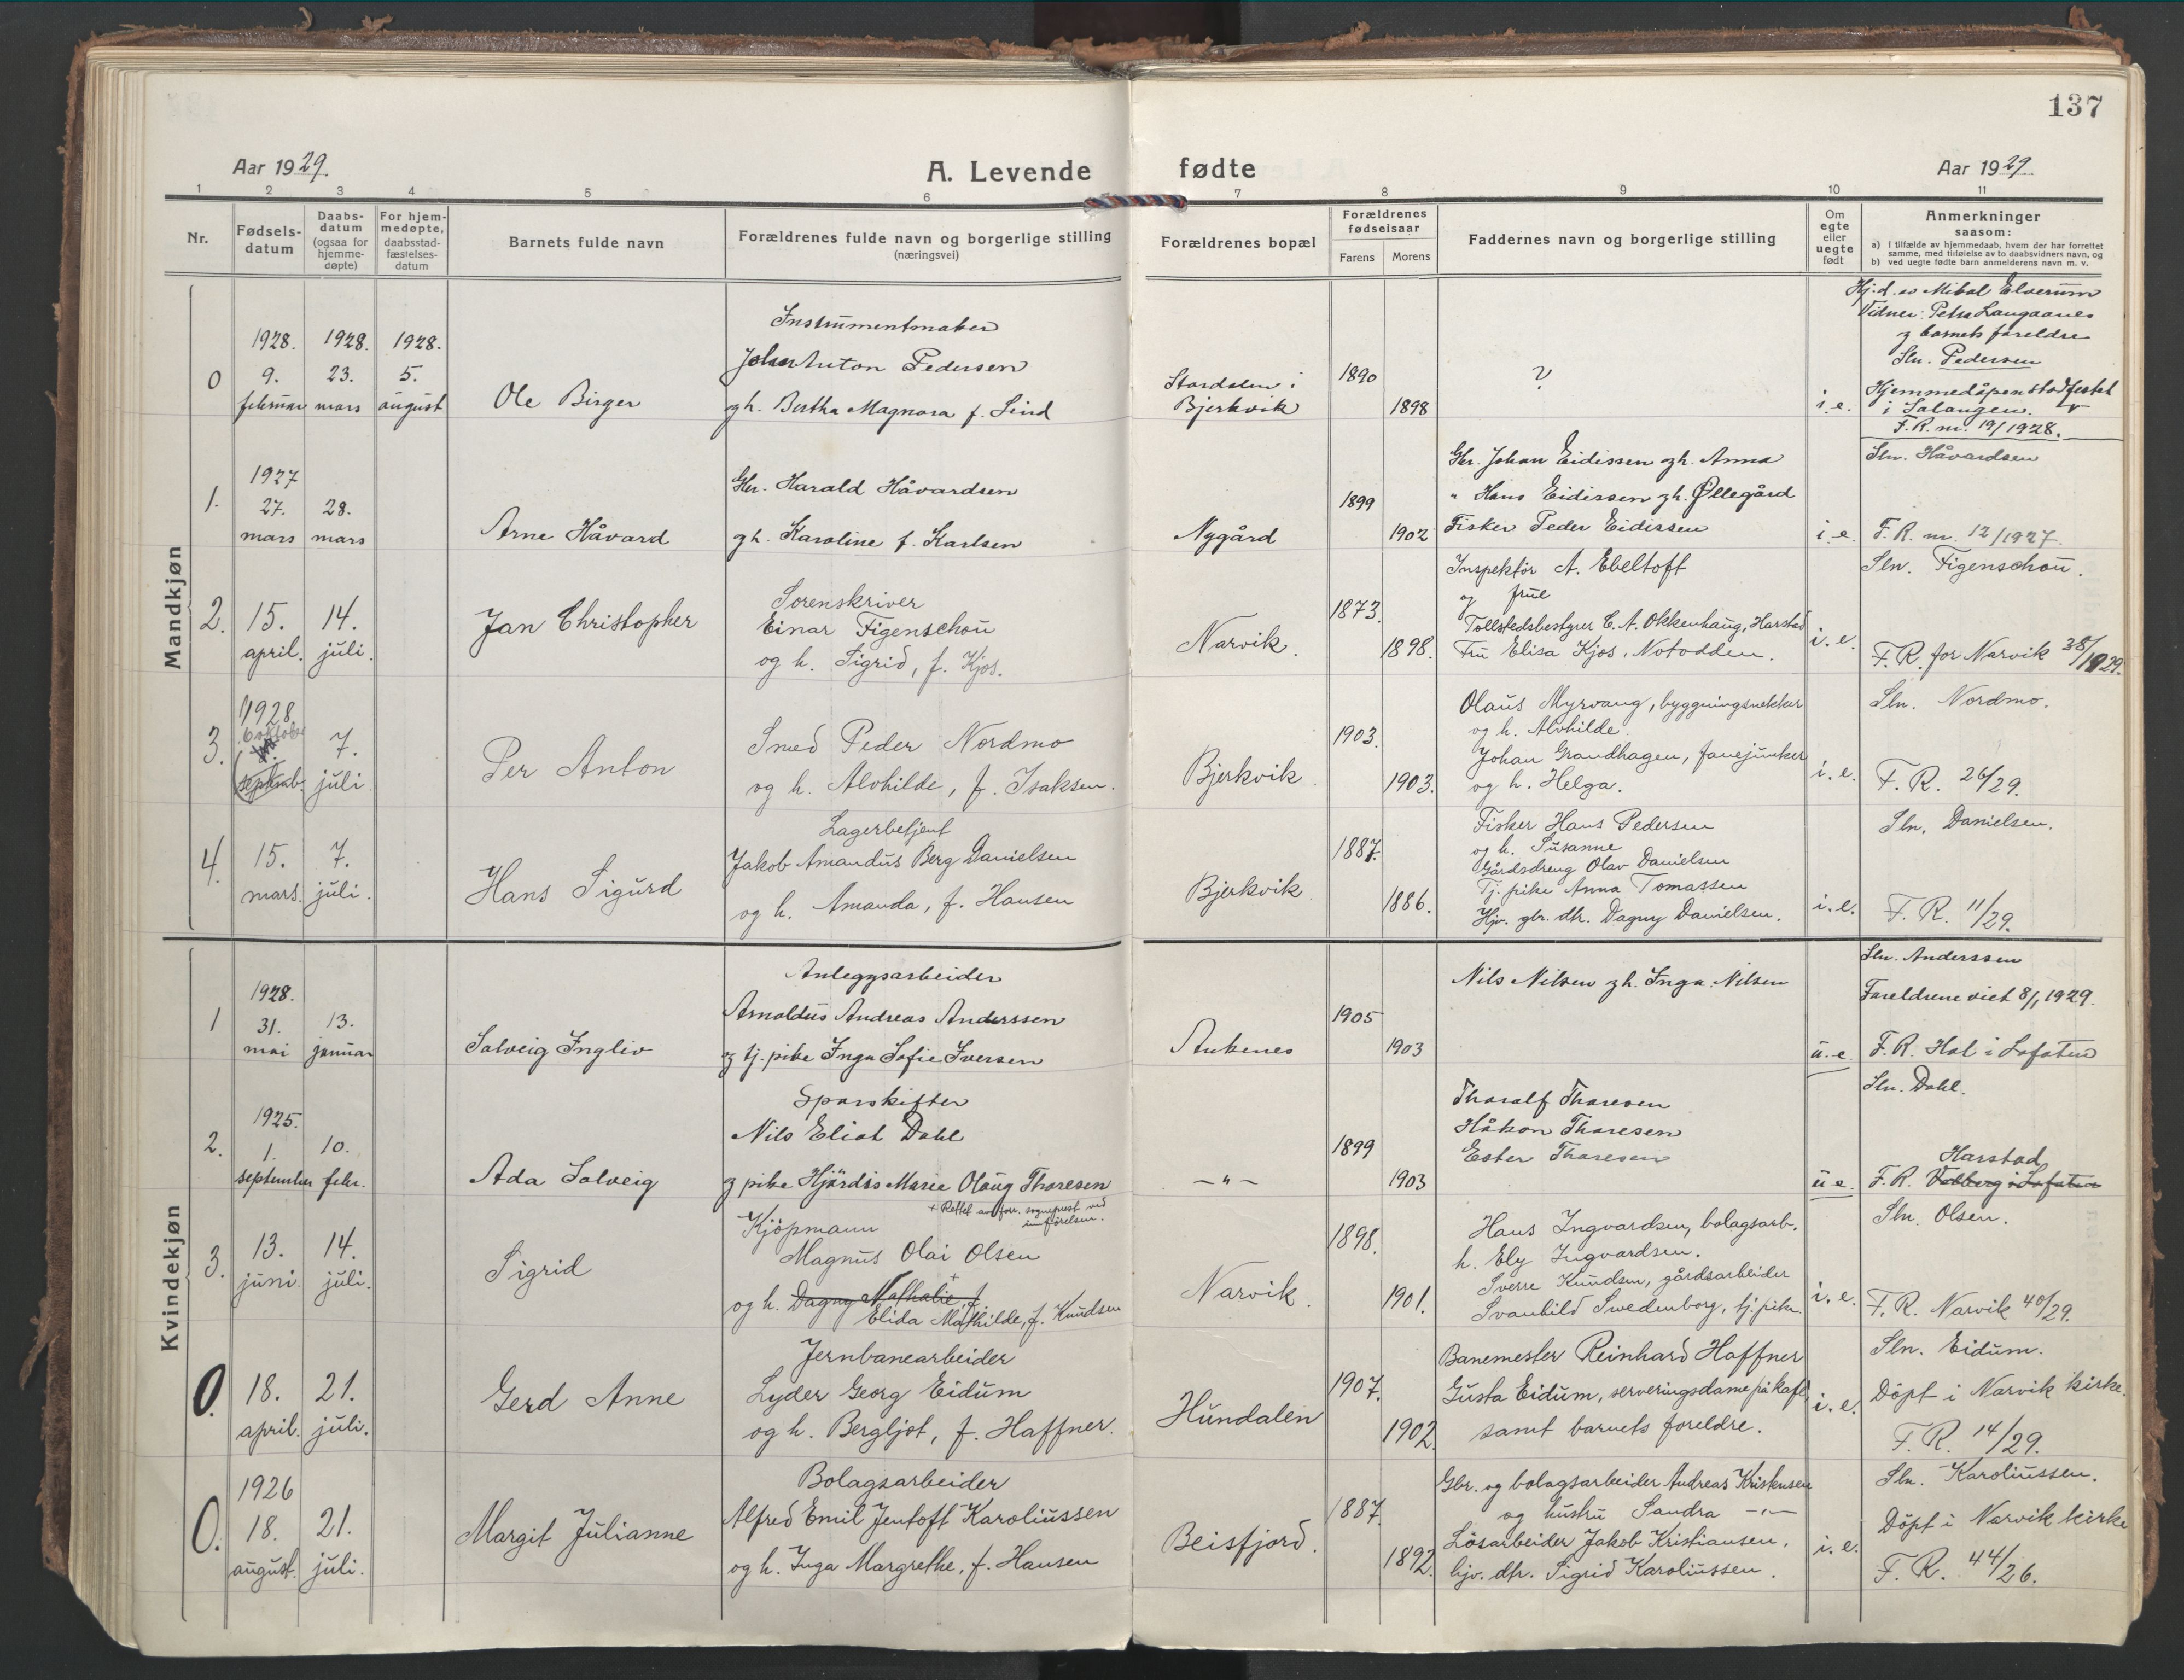 137
Aar 1929.
A. Levende fødte
Aar 1929.
1 2 3 4 5 6 7 8 9 10 11
Nr.
Fødsels-datum
Daabs-datum (ogsaa for hjemme-døpte)
For hjem-medøpte, daabsstad-fæstelses-datum
Barnets fulde navn
Forældrenes fulde navn og borgerlige stilling (næringsvei)
Forældrenes bopæl
Forældrenes fødselsaar
Farens Morens
Faddernes navn og borgerlige stilling
Om egte eller uegte født
Anmerkninger saasom:
a) I tilfælde av hjemmedaab, hvem der har forrettet samme, med tilføielse av to daabsvidners navn, og
b) ved uegte fødte barn anmelderens navn m. v.
Mandkjøn
0
1928. 9. februar
1928. 23. mars
1928. 5. august
Ole Birger
Instrumentmaker
Johan Anton Pedersen
og h. Bertha Magnora f. Lind
Stordalen i
Bjerkvik
1890
1898
?
i.e.
Hj.d. av Mikal Elverum
Vidner: Petra Langaanes
og barnets foreldre
Sln. Pedersen
Hjemmedåpen stadfestet
i Salangen.
F.R. nr. 19/1928.
1.
1927 27. mars
28. mars
Arne Håvard
Gbr. Harald Håvardsen
og h. Karoline f. Karlsen
Nygård
1899
1902
Gbr. Johan Eidissen og h. Anna
" Hans Eidissen og h. Øllegård
Fisker Peder Eidissen
i.e.
Sln. Håvardsen
F.R. nr. 12/1927.
2.
15. april.
14. juli.
Jan Christopher
Sorenskriver
Einar Figenschou
og h. Sigrid, f. Kjos.
Narvik.
1873.
1898.
Inspektør A. Ebeltoft
og frue
Tollstedsbestyrer E. A. Okkenhaug, Harstad
Fru Elisa Kjos, Notodden.
i.e.
Sln. Figenschou.
F.R. for Narvik 38/1929.
3.
1928 6 oktober
septemb.
7. juli
Per Anton
Smed Peder Nordmo
og h. Alvhilde, f. Isaksen.
Bjerkvik.
1903.
1903.
Olaus Myrvang, bygningsnekker
og h. Alvhilde.
Johan Grandhagen, fanejunker
og h. Helga.
i.e.
Sln. Nordmo.
F.R. 26/29.
4.
15. mars.
7. juli.
Hans Sigurd
Lagerbetjent
Jakob Amandus Berg Danielsen
og h. Amanda, f. Hansen
Bjerkvik.
1887.
1886.
Fisker Hans Pedersen
og h. Susanne
Gårdsdreng Olav Danielsen
Tj. pike Anna Tomassen
Hjv. gbr. dtr. Dagny Danielsen.
i.e.
Sln. Danielsen.
F.R. 11/29.
Kvindekjøn
1
1928. 31. mai
13. januar
Solveig Ingliv
Anleggsarbeider
Arnoldus Andreas Anderssen
og tj. pike Inga Sofie Iversen
Ankenes
1905
1903
Nils Nilsen og h. Inga Nilsen
u.e.
Sln. Anderssen
Foreldrene viet 8/1 1929.
F.R. Hol i Lofoten
2.
1925. 1. september
10. febr.
Ada Solveig
Sporskifter
Nils Eliot Dahl
og pike Hjørdis Marie Olaug Thoresen
— " —
1899
1903
Thoralf Thoresen
Håkon Thoresen
Ester Thoresen
u.e.
Sln. Dahl.
Harstad
F.R. Valberg i Lofoten
3.
13. juni.
14. juli.
Sigrid
+ Rettet av forr. sogneprest ved innførelsen.
Kjøpmann
Magnus Olai Olsen
og h. Dagny Nathalie, f.
Elida Mathilde, f. Knudsen
Narvik.
1898.
1901.
Hans Ingvardsen, bolagsarb.
h. Ely Ingvardsen.
Sverre Knudsen, gårdsarbeider
Svanhild Swedenborg, tj. pike.
i.e.
Sln. Olsen.
F.R. Narvik 40/29.
0.
18. april.
21. juli.
Gerd Anne
Jernbanearbeider
Lyder Georg Eidum
og h. Bergljot, f. Haffner.
Hundalen
1907.
1902.
Banemester Reinhard Haffner
Gusta Eidum, serveringsdame på kafé,
samt barnets foreldre.
i.e.
Sln. Eidum.
Döpt i Narvik kirke.
F.R. 14/29.
0.
1926 18. august.
21. juli.
Margit Julianne
Bolagsarbeider
Alfred Emil Jentoft Karoliussen
og h. Inga Margrethe, f. Hansen
Beisfjord.
1887.
1892.
Gbr. og bolagsarbeider Andreas Kristensen
og hustru Sandra — " —
Lösarbeider Jakob Kristiansen,
hjv. dtr. Sigrid Karoliussen.
i.e.
Sln. Karoliussen.
Döpt i Narvik kirke
F.R. 44/26.